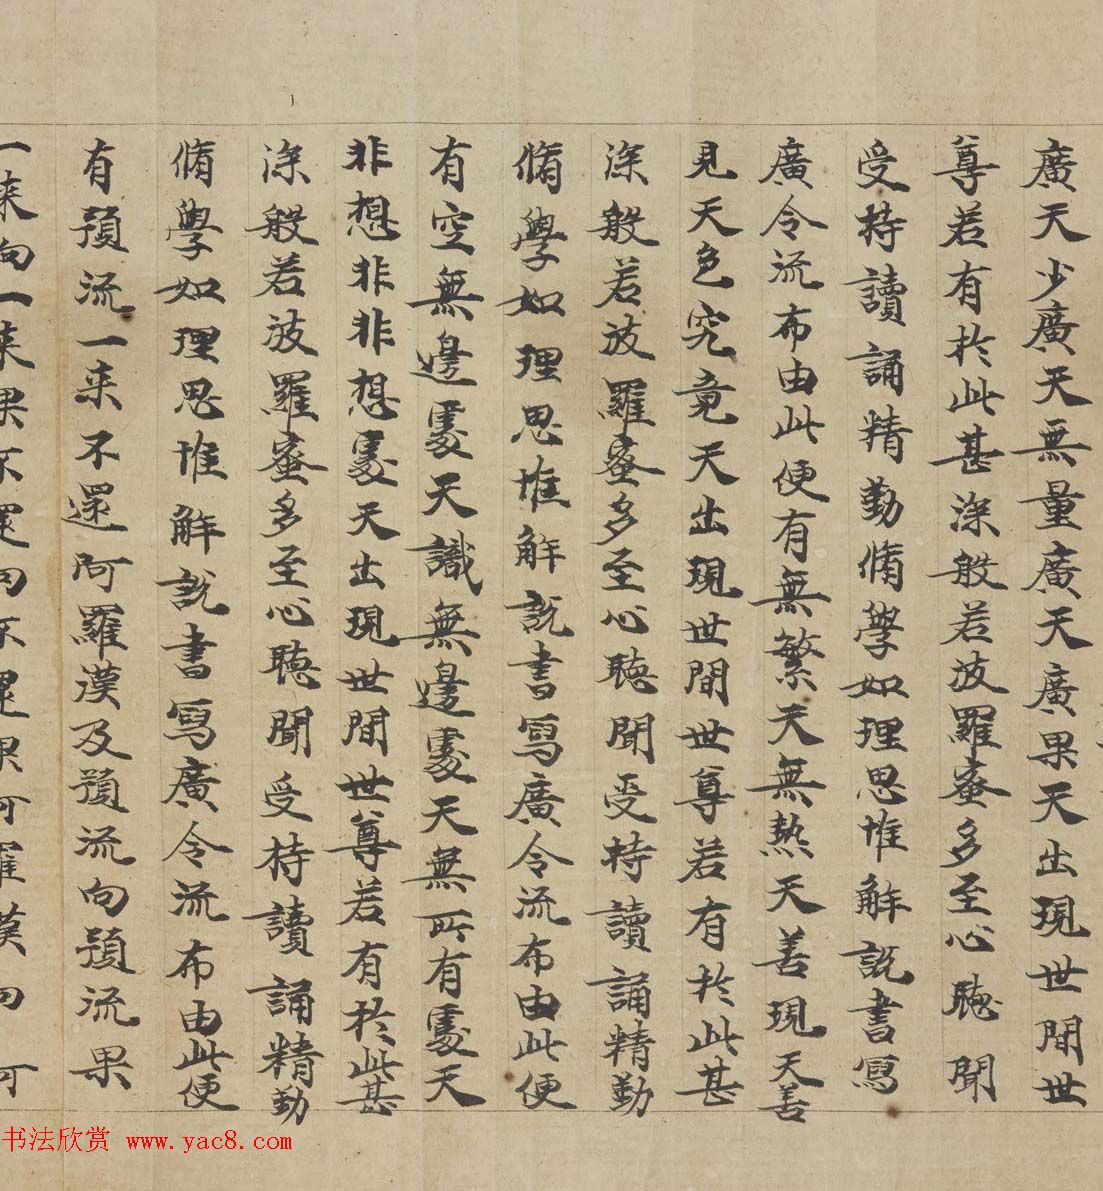 廣天少廣天無量廣天廣果天出現世間世
尊若有於此甚深般若波羅蜜多至心聽聞
受持讀誦精勤脩學如理思惟解說書寫
廣令流布由此便有無繁天無熱天善現天善
見天色究竟天出現世間世尊若有於此甚
深般若波羅蜜多至心聽聞受持讀誦精勤
脩學如理思惟解說書寫廣令流布由此便
有空無邊處天識無邊處天無所有處天
非想非非想處天出現世間世尊若有於此甚
深般若波羅蜜多至心聽聞受持讀誦精勤
脩學如理思惟解說書寫廣令流布由此便
有預流一来不還阿羅漢及預流向預流果
一来向一来果不還向不還果阿羅漢向阿
书法欣赏 www.yac8.com